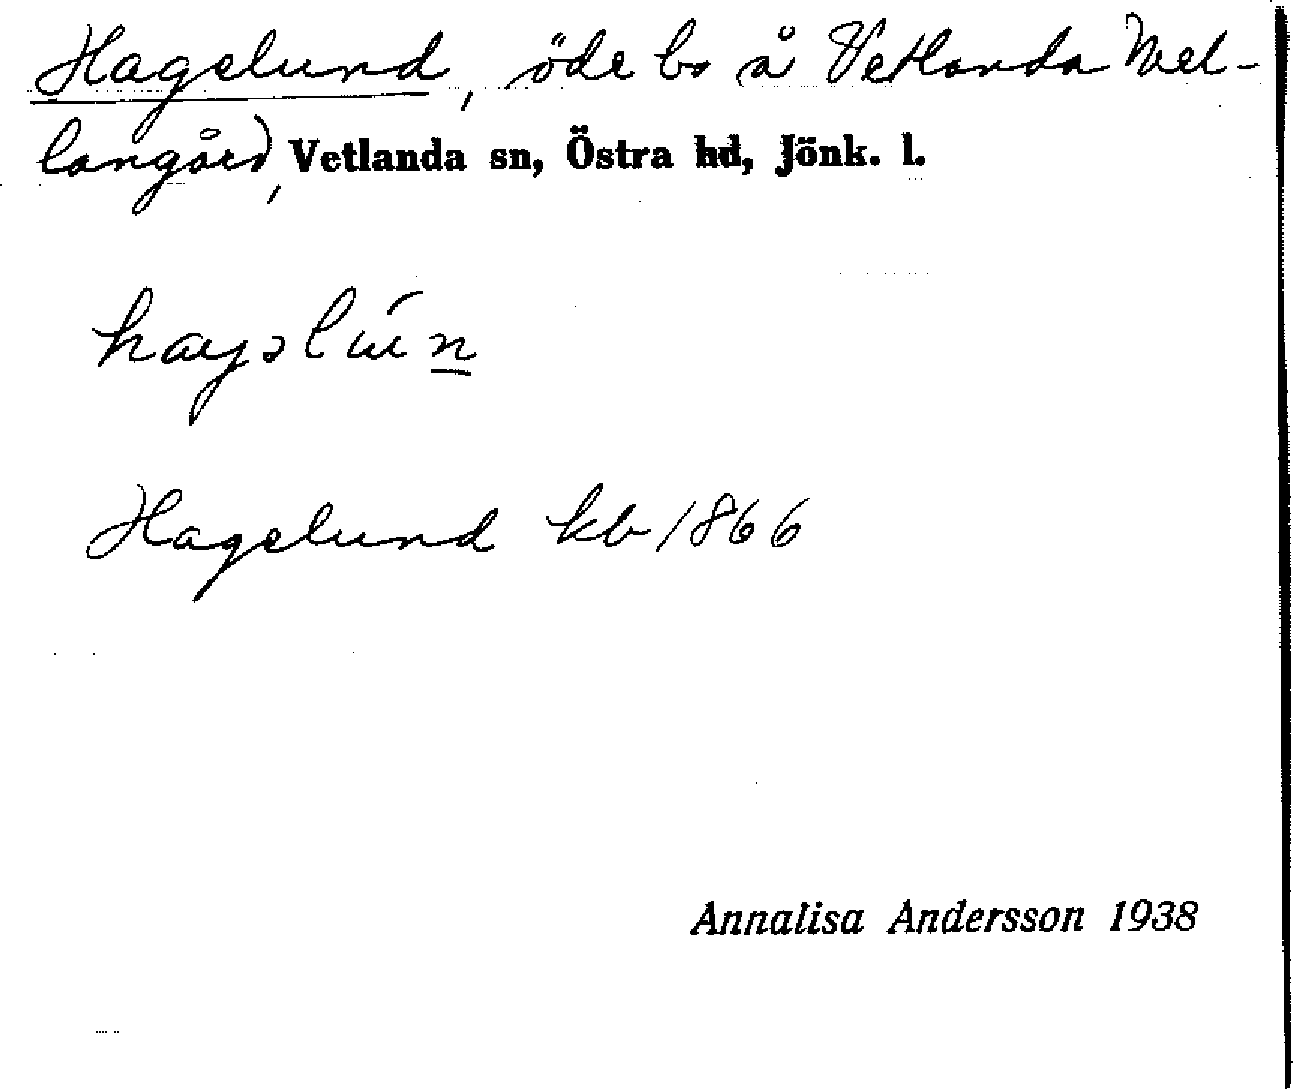 Hagelund, öde bo å Vetlanda Mel-
langård, Vetlanda sn, Östra hd, Jönk. l.
Hagelund kb 1866
Annalisa Andersson 1938